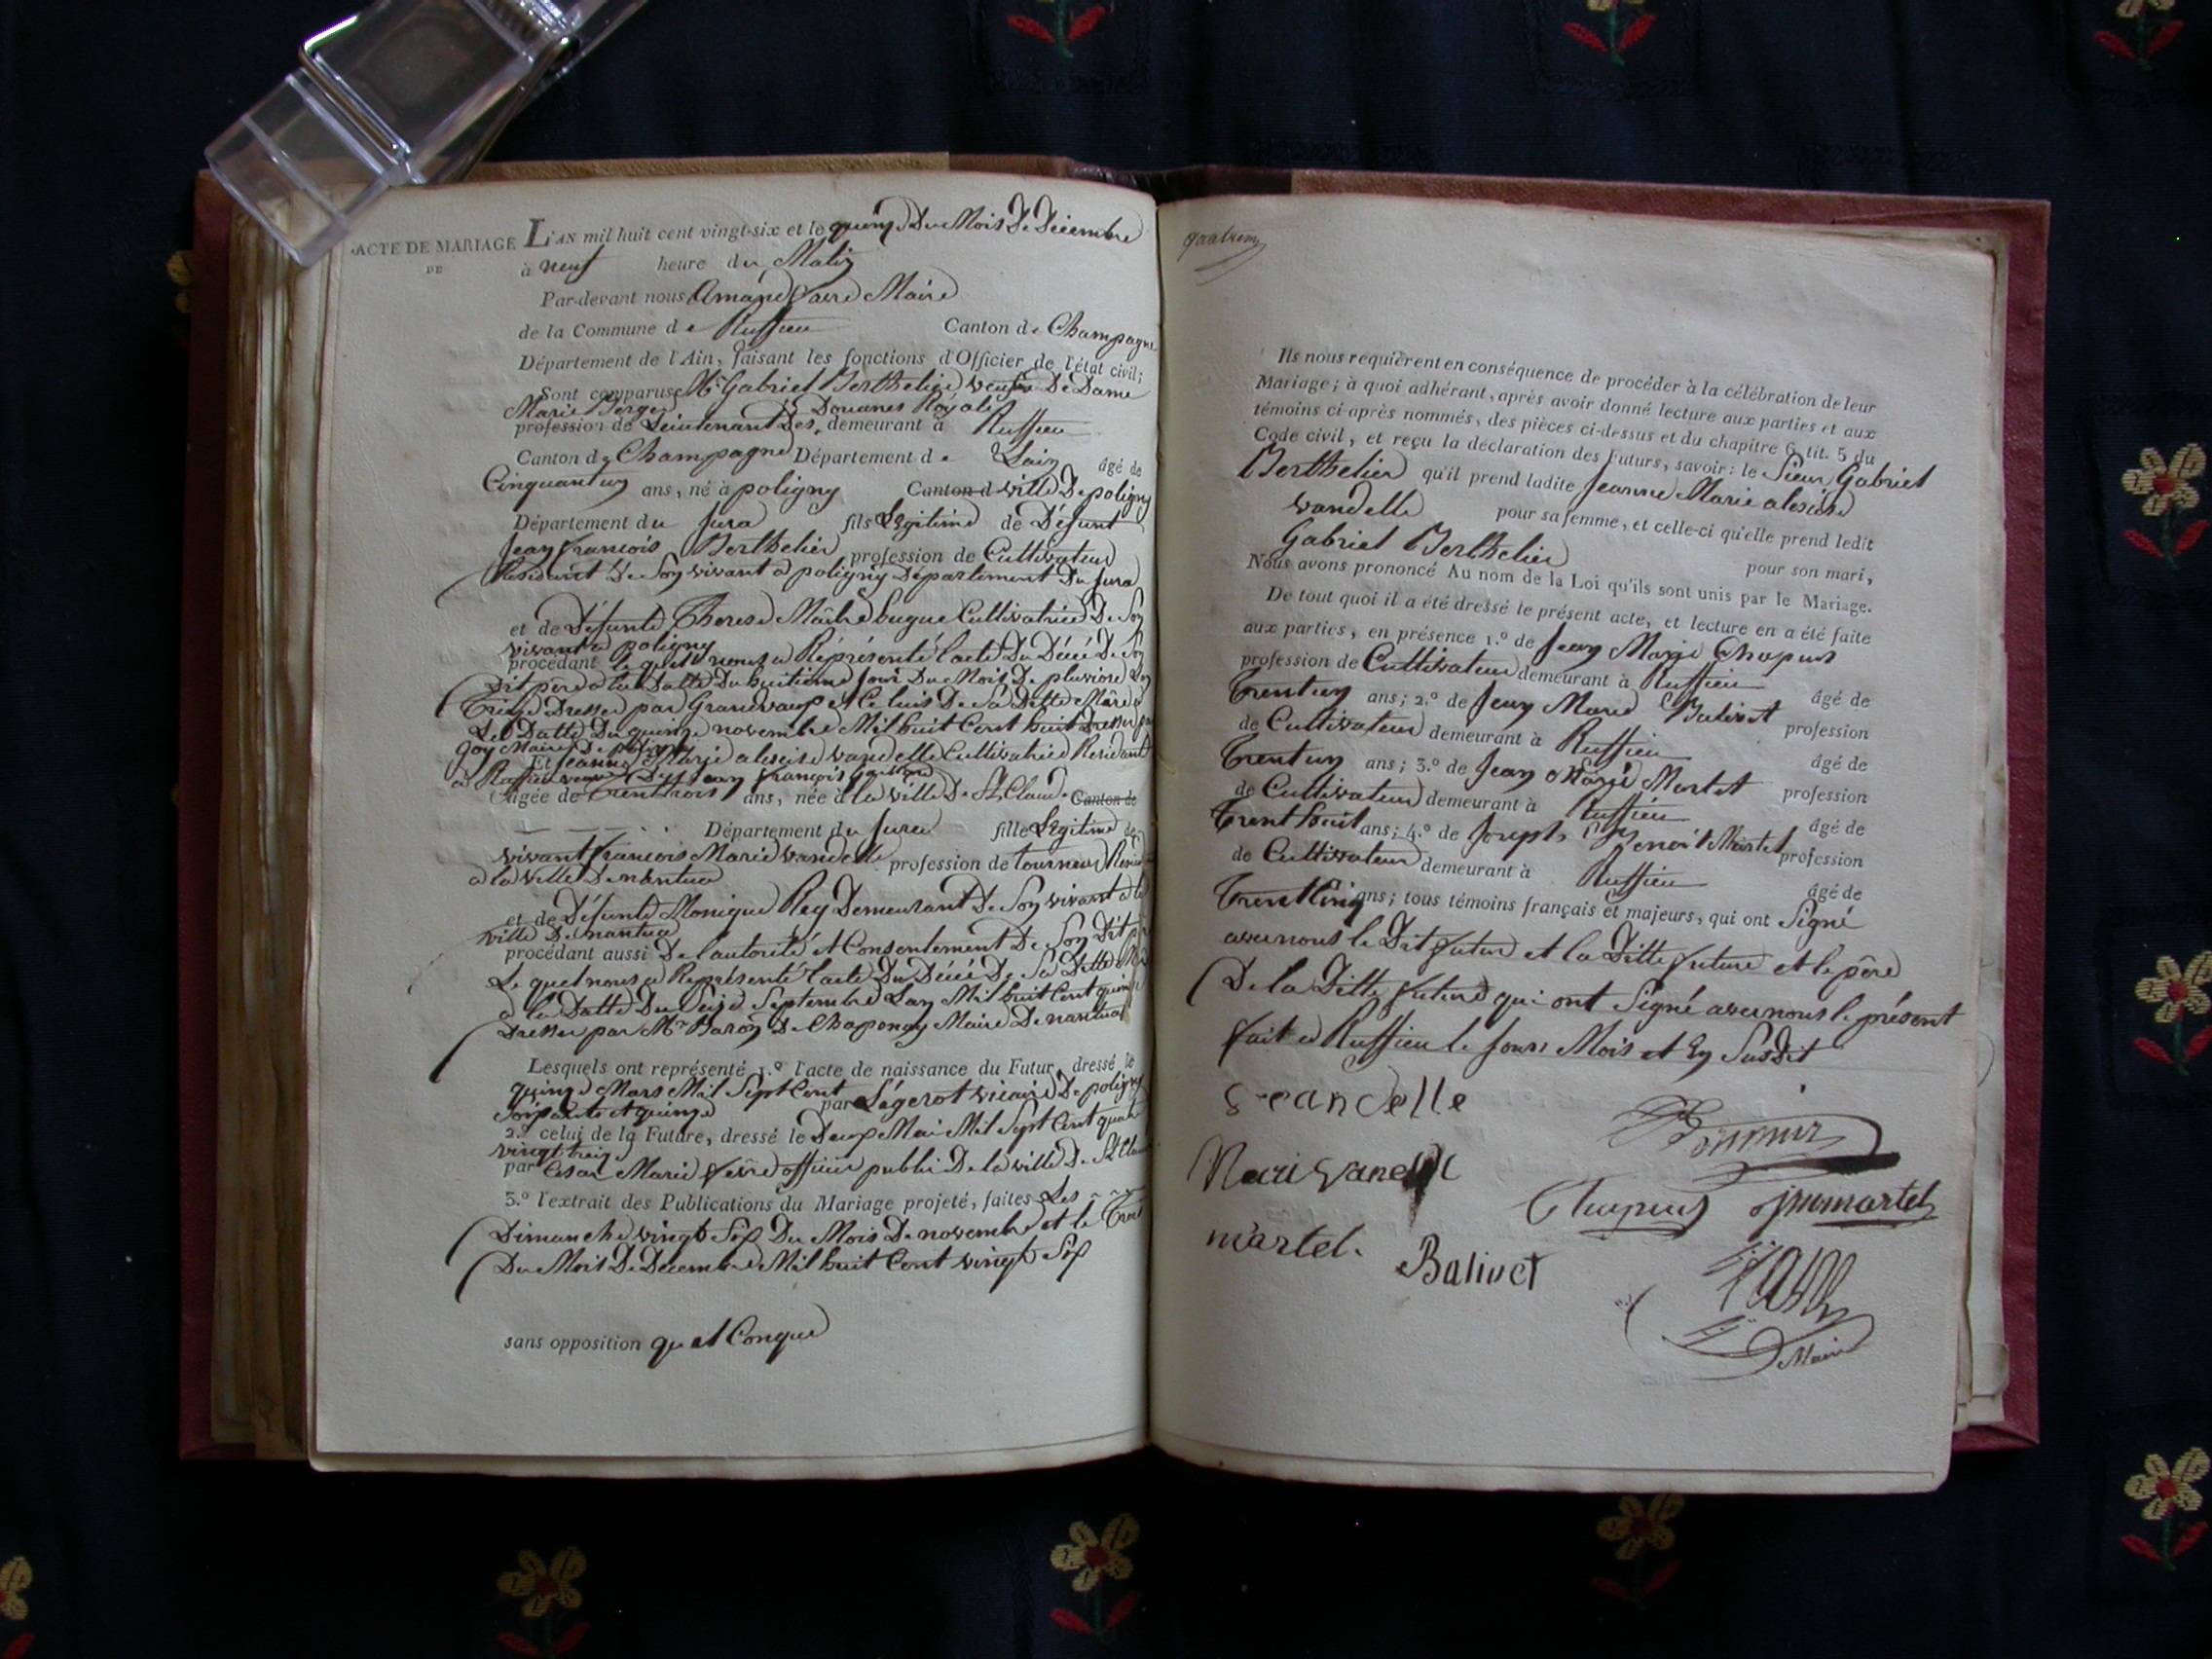 ACTE DE MARIAGE
DE
L'AN mil huit cent vingt-six et le quinze Du Mois De Décembre
à neuf heure du Matin
Par-devant nous Amand Maire
de la Commune de Ruffieu Canton de Champagne
Département de l'Ain, faisant les fonctions d'Officier de l'état civil;
Sont comparus Mr Gabriel Berthelier veuf De Dame
Marie Berger
profession de Lieutenant Des Douanes Royales demeurant à Ruffieu
Canton de Champagne Département de Lain âgé de
Cinquantun ans, né à poligny Canton d ville De poligny
Département du Jura fils Légitime de Défunt
Jean françois Berthelier profession de Cultivateur
Résidant De Son vivant à poligny Département Du Jura
et de Défunte Therese Cultivatrice De Son
vivant a poligny
procédant le quel nous a Réprésenté lacte Du Décé De Son
Dit père a la Datte Du huitième Jour Du Mois De pluviose Lan
Treize Dressé par Grandvaux et Celuis De Sa Ditte Mère a
La Datte Du quinze novembre Mil huit Cent huit Dressé par
Maire De poligny
Et Jeanne Marie alexise vandelle Cultivatrice Residante
à Ruffieu veuve De Jean françois
âgée de Trentrois ans, née à la ville De St Claude Canton de
Département du Jura fille Légitime de
vivant françois Marie vandelle profession de tourneur
a la ville De nantua
et de Défunte Monique Rey Demeurant De Son vivant a la
ville De nantua
procédant aussi De l'autorité et Consentement De Son Dit père
Le quel nous a Représenté lacte Du Décé De Sa Ditte Mère
a la Datte Du Seize Septembre Lan Mil huit Cent quinze
Dressé par Mr Baron De Chaponay Maire De nantua
Lesquels ont représenté 1.º l'acte de naissance du Futur, dressé le
quinze Mars Mil Sept Cent
Soixante et quinze par Légerot vicaire De poligny
2.º celui de la Future, dressé le Deux Mai Mil Sept Cent quatre
vingt treize
par Cesar Marie officier public De la ville De St Claude
3.º l'extrait des Publications du Mariage projeté, faites Les
Dimanche vingt Six Du Mois De novembre et le Trois
Du Mois De Décembre Mil huit Cent vingt Six
sans opposition quel Conque
Ils nous requièrent en conséquence de procéder à la célébration de leur
Mariage; à quoi adhérant, après avoir donné lecture aux parties et aux
témoins ci-après nommés, des pièces ci-dessus et du chapitre 6, tit. 5 du
Code civil, et reçu la déclaration des Futurs, savoir: le Sieur Gabriel
Berthelier qu'il prend ladite Jeanne Marie alexise
vandelle pour sa femme, et celle-ci qu'elle prend ledit
Gabriel Berthelier pour son mari,
Nous avons prononcé Au nom de la Loi qu'ils sont unis par le Mariage.
De tout quoi il a été dressé le présent acte, et lecture en a été faite
aux parties, en présence 1.º de Jean Marie Chapuis
profession de Cultivateur demeurant à Ruffieu âgé de
Trentun ans; 2.º de Jean Marie Balivet profession
de Cultivateur demeurant à Ruffieu âgé de
Trentun ans; 3.º de Jean Marie Martel profession
de Cultivateur demeurant à Ruffieu âgé de
Trent huit ans; 4.º de Joseph Benoit Martel profession
de Cultivateur demeurant à Ruffieu âgé de
Trentcinq ans; tous témoins français et majeurs, qui ont Signé
avec nous le Dit futur et la Ditte future et le père
De la Ditte future qui ont Signé avec nous le présent
fait a Ruffieu le Jour Mois et En Susdit
martel.
Balivet
jmmartel
Maire